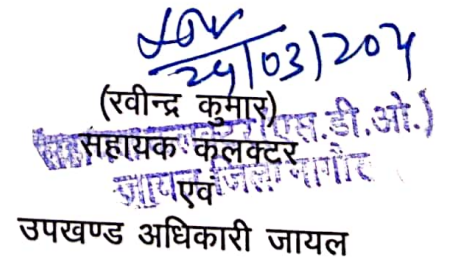 24/03/204
(रवीन्द्र कुमार)
सहायक कलक्टर एस.डी.ओ.)
जायल जिला नागौर
एवं
उपखण्ड अधिकारी जायल